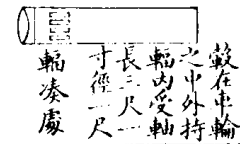 轂在車輪
之中外持
輻內受軸
長三尺一
寸徑一尺
輻湊處